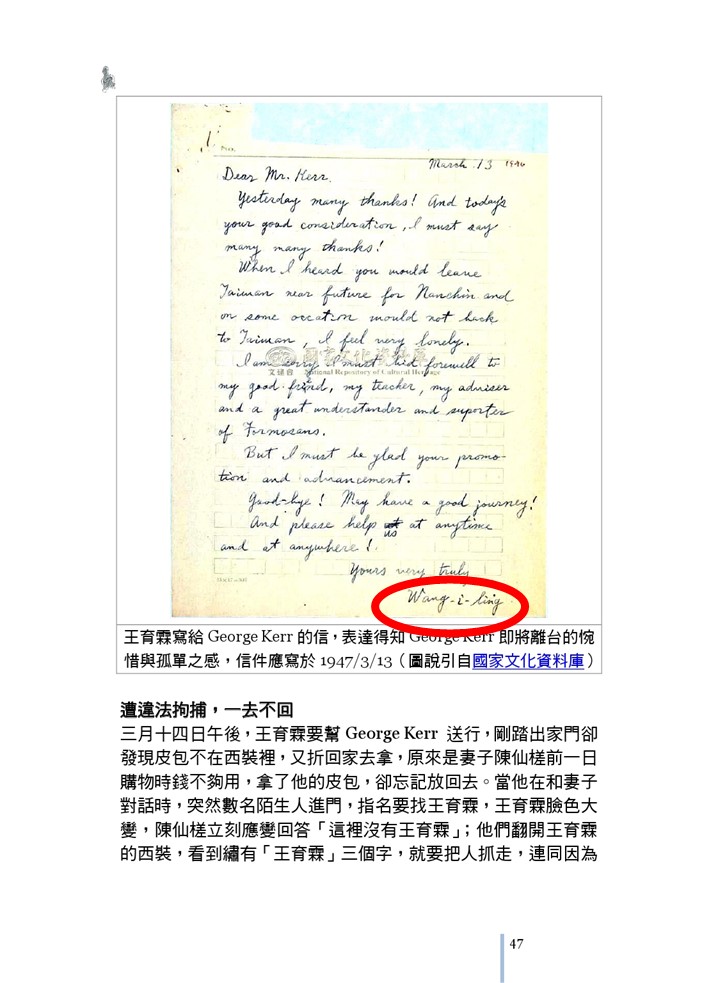 1
March 13 1946
Dear Mr. Kerr.
Yesterday many thanks! And today's
your good consideration, I must say
many many thanks!
When I heard you would leave
Taiwan near future for Nanchin and
on some occation would not back
to Taiwan, I feel very lonely.
國家文化資料庫
I am sorry I must bid forewell to
文建會 National Repository of Cultural Heritage
my good friend, my teacher, my adviser
and a great understander and suporter
of Formosans.
But I must be glad your promo-
tion and advancement.
Good-bye! May have a good journey!
And please help us at anytime
and at anywhere!
Yours very truly
Wang-i-ling
王育霖寫給 George Kerr 的信，表達得知 George Kerr 即將離台的惋
惜與孤單之感，信件應寫於 1947/3/13（圖說引自國家文化資料庫）
遭違法拘捕，一去不回
三月十四日午後，王育霖要幫 George Kerr 送行，剛踏出家門卻
發現皮包不在西裝裡，又折回家去拿，原來是妻子陳仙槎前一日
購物時錢不夠用，拿了他的皮包，卻忘記放回去。當他在和妻子
對話時，突然數名陌生人進門，指名要找王育霖，王育霖臉色大
變，陳仙槎立刻應變回答「這裡沒有王育霖」；他們翻開王育霖
的西裝，看到繡有「王育霖」三個字，就要把人抓走，連同因為
47